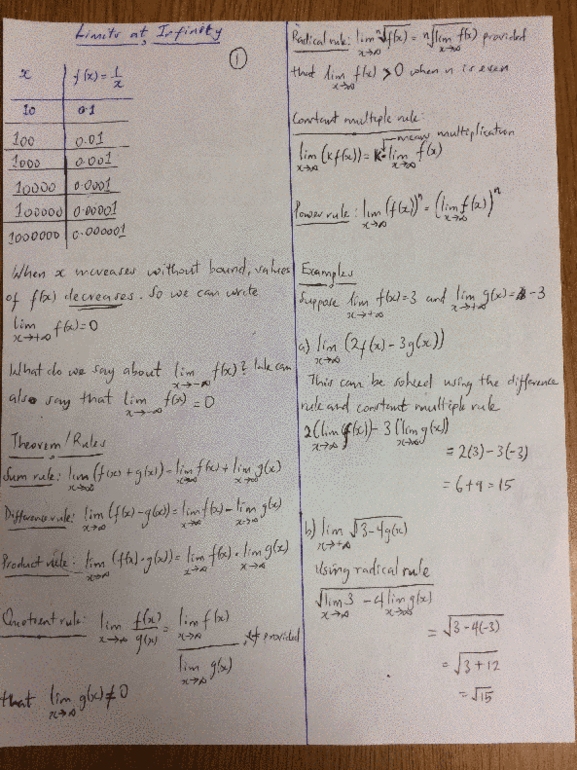 Limits at Infinity
①
x f(x) = 1/x
10 0.1
100 0.01
1000 0.001
10000 0.0001
100000 0.00001
1000000 0.000001
When x increases without bound, values
of f(x) decreases. So we can write
lim x→+∞ f(x) = 0
What do we say about lim x→-∞ f(x)? We can
also say that lim x→-∞ f(x) = 0
Theorem/Rules
Sum rule: lim x→∞ (f(x) + g(x)) = lim x→∞ f(x) + lim x→∞ g(x)
Difference rule: lim x→∞ (f(x) - g(x)) = lim x→∞ f(x) - lim x→∞ g(x)
Product rule: lim x→∞ (f(x) · g(x)) = lim x→∞ f(x) · lim x→∞ g(x)
Quotient rule: lim x→∞ f(x)/g(x) = lim x→∞ f(x) / lim x→∞ g(x), provided
that lim x→∞ g(x) ≠ 0
Radical rule: lim x→∞ ⁿ√f(x) = ⁿ√lim x→∞ f(x) provided
that lim x→∞ f(x) > 0 when n is even
Constant multiple rule:
means multiplication
lim x→∞ (kf(x)) = k · lim x→∞ f(x)
Power rule: lim x→∞ (f(x))ⁿ = (lim x→∞ f(x))ⁿ
Examples
Suppose lim x→+∞ f(x) = 3 and lim x→+∞ g(x) = -3
a) lim x→∞ (2f(x) - 3g(x))
This can be solved using the difference
rule and constant multiple rule
2(lim x→∞ f(x)) - 3(lim x→∞ g(x))
= 2(3) - 3(-3)
= 6 + 9 = 15
b) lim x→+∞ √3-4g(x)
Using radical rule
√lim x→∞ 3 - 4 lim x→∞ g(x)
= √3-4(-3)
= √3+12
= √15